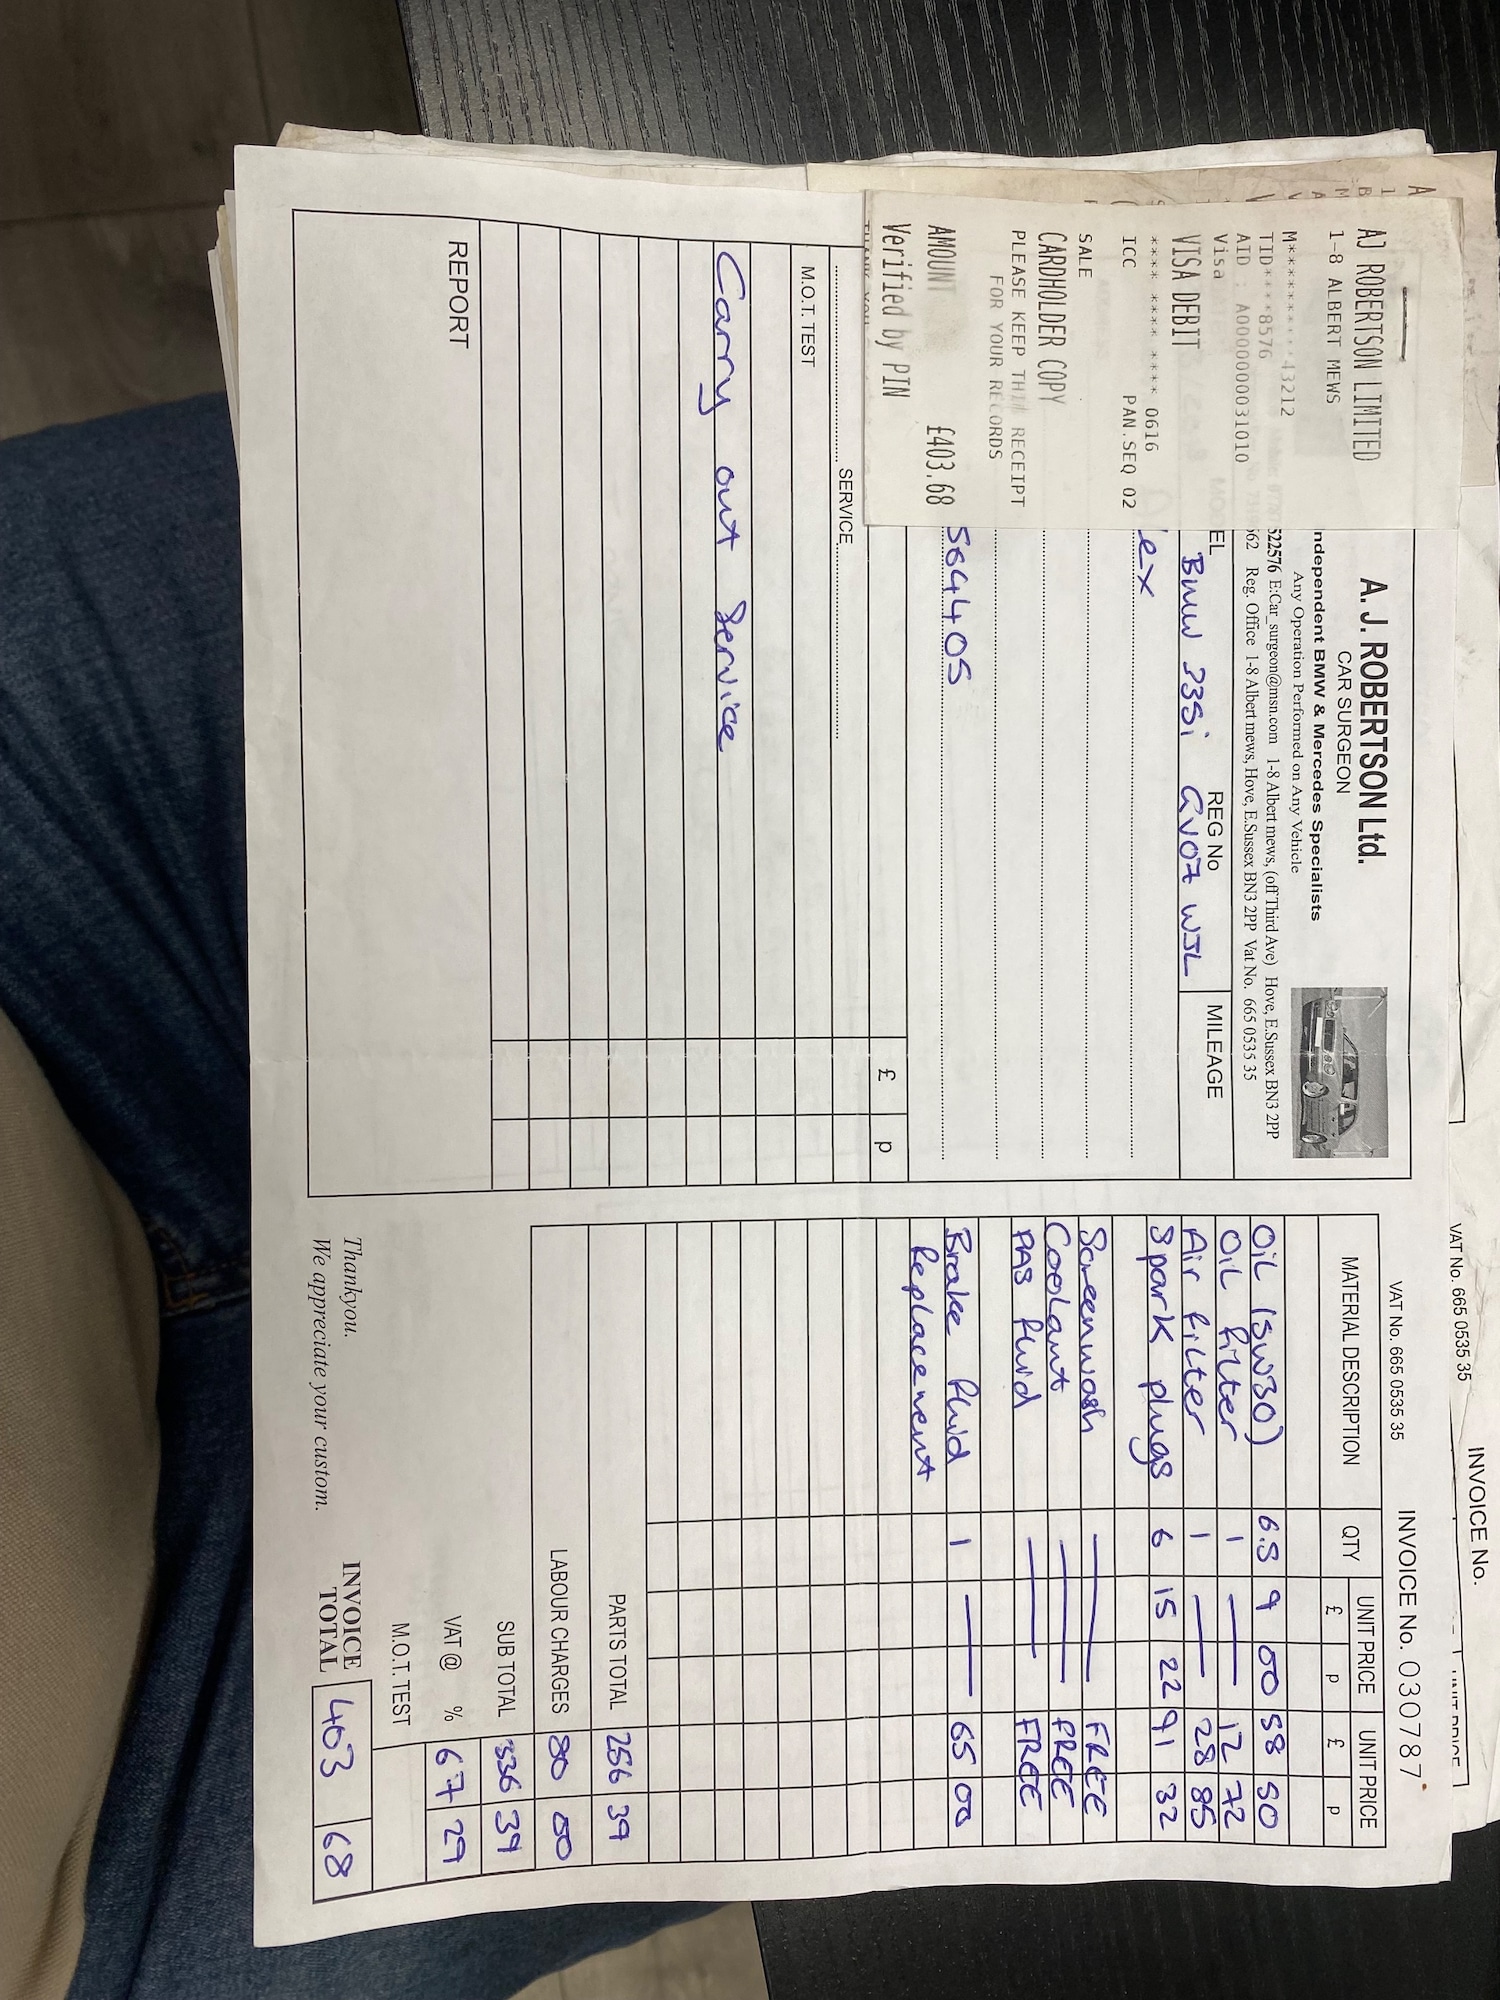 AJ ROBERTSON LIMITED
1-8 ALBERT MEWS
M*********43212
TID****8576
AID : A0000000031010
Visa
VISA DEBIT
**** **** **** 0616
ICC PAN.SEQ 02
SALE
CARDHOLDER COPY
PLEASE KEEP THIS RECEIPT
FOR YOUR RECORDS
AMOUNT £403.68
Verified by PIN
A. J. ROBERTSON Ltd.
CAR SURGEON
ndependent BMW & Mercedes Specialists
Any Operation Performed on Any Vehicle
522576 E:Car_surgeon@msn.com 1-8 Albert mews, (off Third Ave) Hove, E.Sussex BN3 2PP
62 Reg. Office 1-8 Albert mews, Hove, E.Sussex BN3 2PP Vat No. 665 0535 35
EL REG No MILEAGE
BMW 335i GV07 WJL
lex
564405
£ p
SERVICE
M.O.T. TEST
Carry out Service
REPORT
VAT No. 665 0535 35
INVOICE No.
VAT No. 665 0535 35 INVOICE No. 030787
MATERIAL DESCRIPTION QTY UNIT PRICE UNIT PRICE
£ p £ p
Oil (5W30) 6.5 9 00 58 50
Oil Filter 1 — 12 72
Air Filter 1 — 28 85
Spark plugs 6 15 22 91 32
Screenwash — FREE
Coolant — FREE
PAS Fluid — FREE
Brake Fluid 1 — 65 00
Replacement
PARTS TOTAL 256 39
LABOUR CHARGES 80 00
SUB TOTAL 336 39
VAT @ % 67 29
M.O.T. TEST
Thankyou.
We appreciate your custom.
INVOICE
TOTAL 403 68